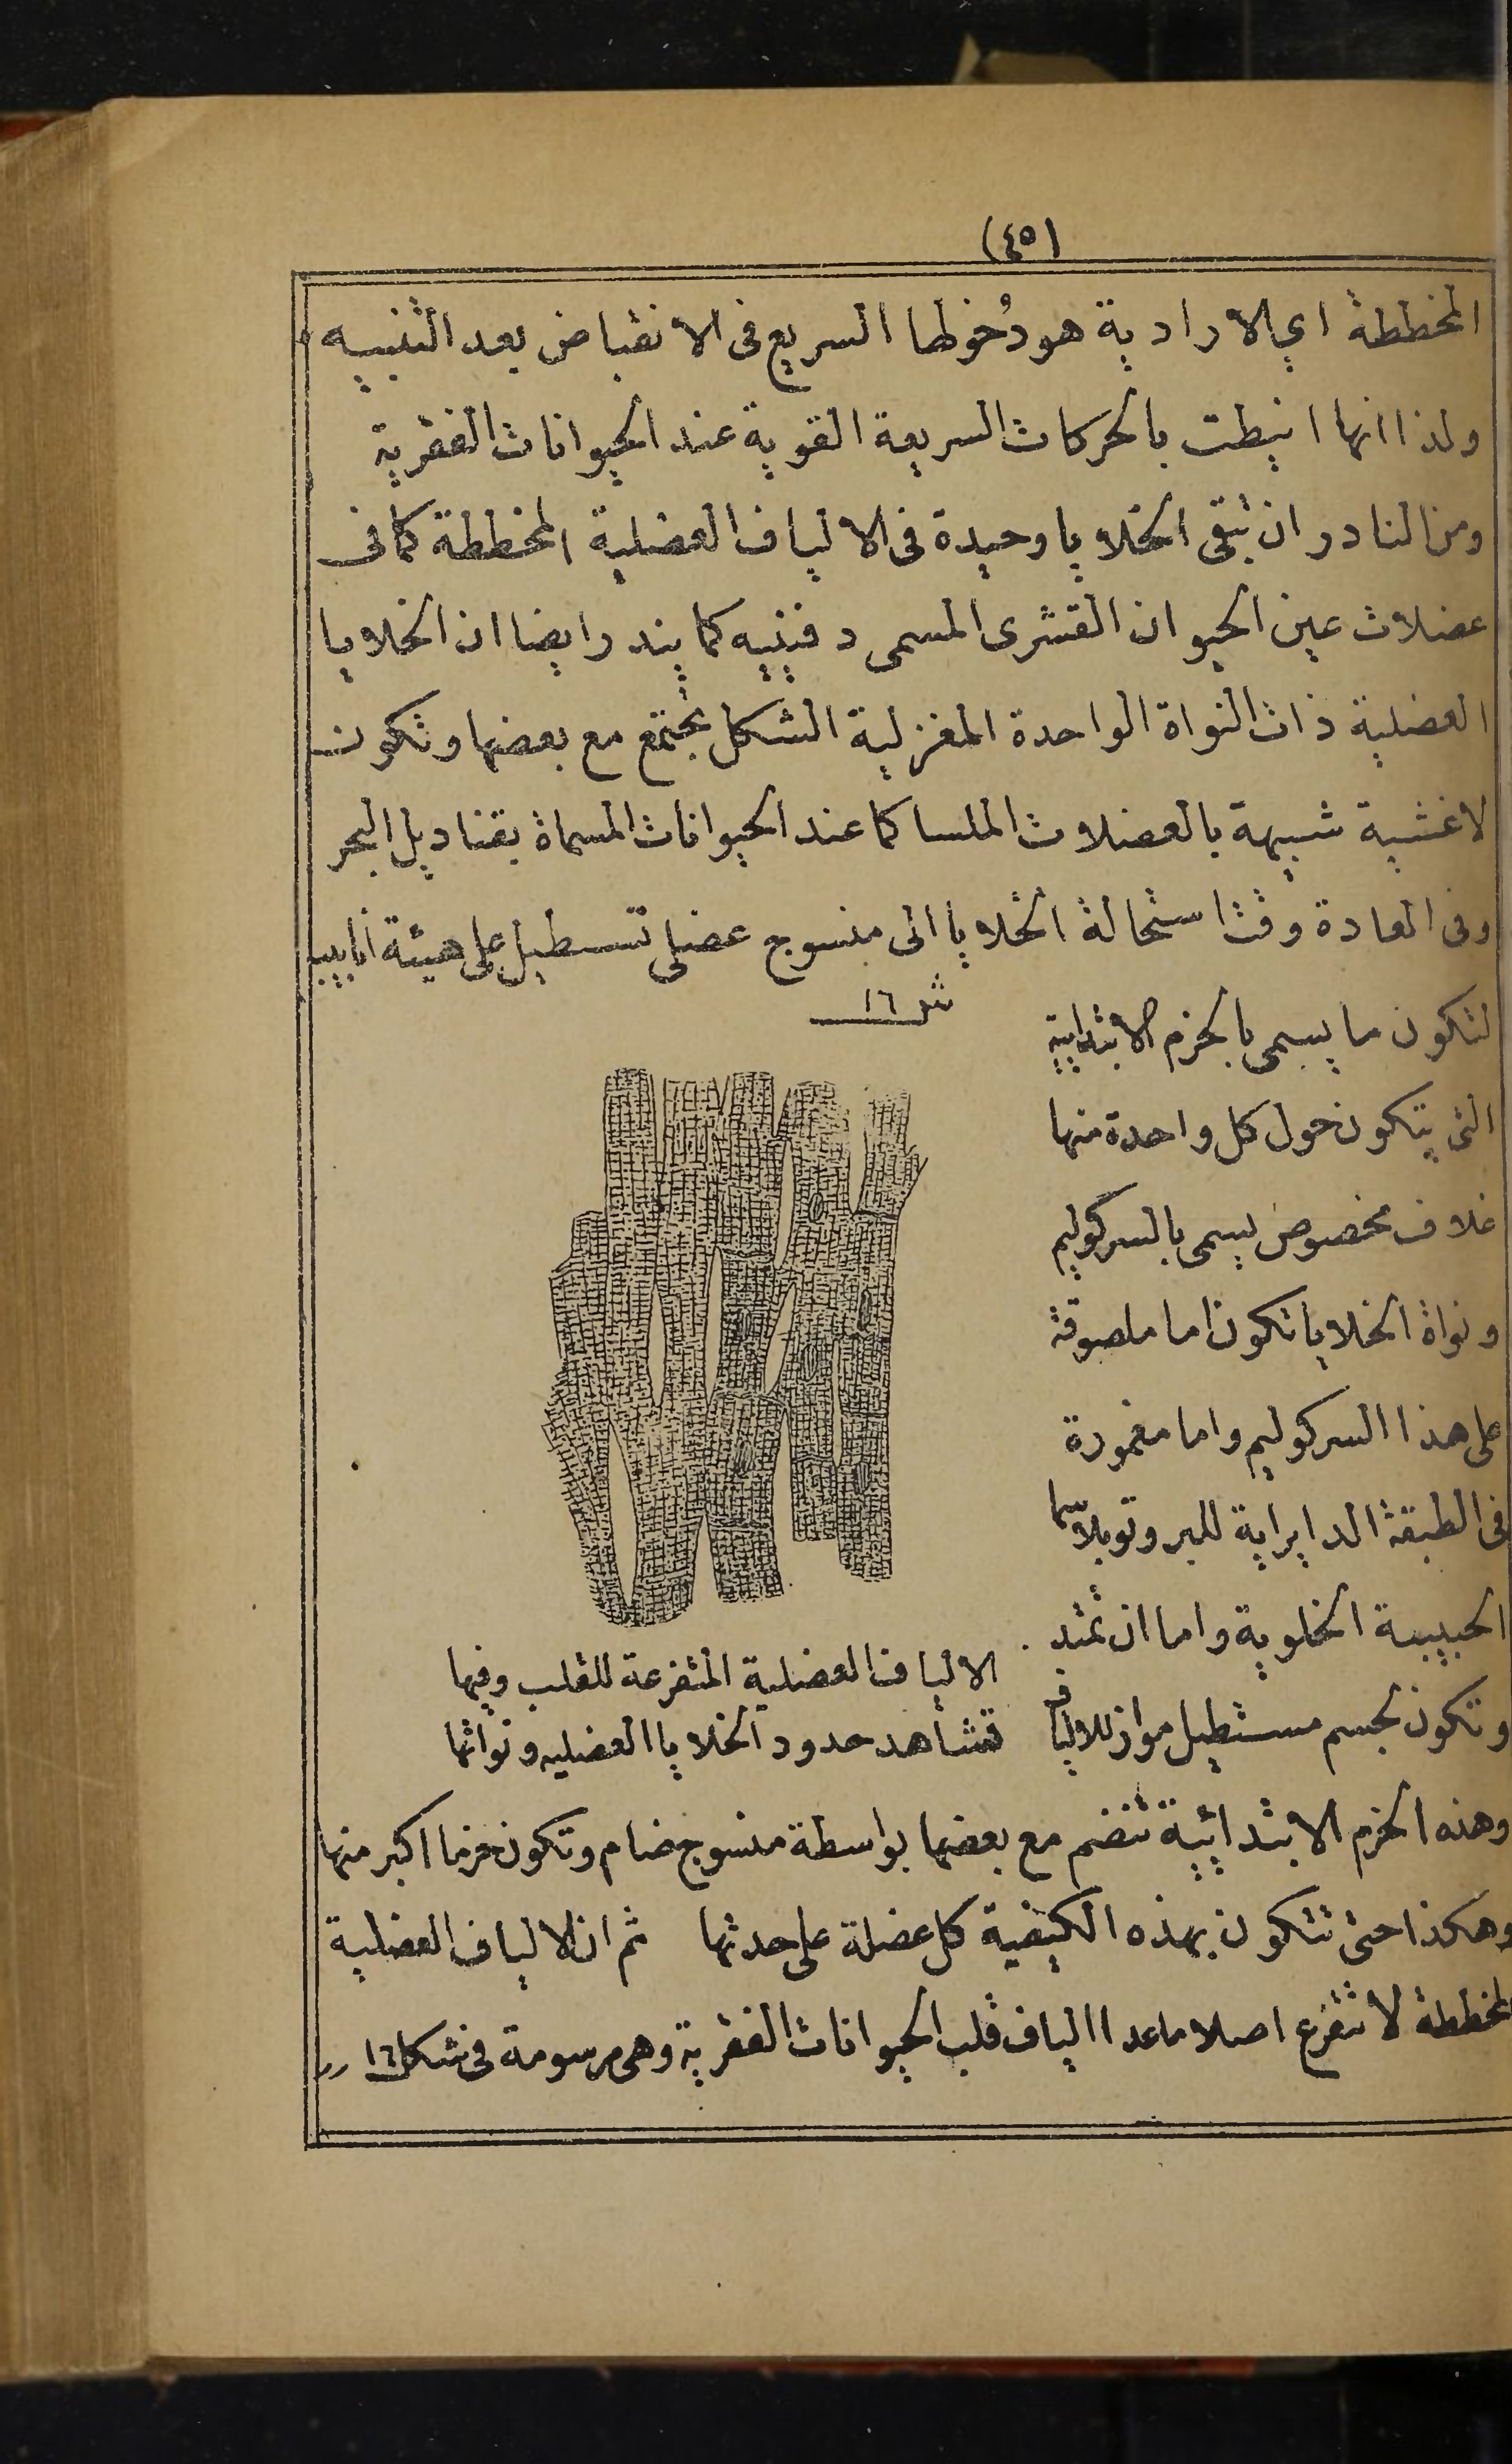 (٤٥)
المخططة اي الارادية هو دُخولها السريع فى الانقباض بعد التنبيه
ولذا انها انيطت بالحركات السريعة القوية عند الحيوانات الفقرية
ومن النادر ان تبقى الخلايا وحيدة فى الالياف العضلية المخططة كما فى
عضلات عين الحيوان القشرى المسمى دفنيه كما يندر ايضا ان الخلايا
العضلية ذات النواة الواحدة المغزلية الشكل تجتمع مع بعضها وتكون
لاغشية شبيهة بالعضلات الملسا كما عند الحيوانات المسماة بقناديل البحر
وفى العادة وقت استحالة الخلايا الى منسوج عضلى تستطيل على هيئة انابيب
شكل ١٦
لتكون ما يسمى بالحزم الابتدايية
التى يتكون حول كل واحدة منها
غلاف مخصوص يسمى بالسركوليم
ونواة الخلايا تكون اما ملصوقة
على هذا السركوليم واما مغمورة
فى الطبقة الدايراية للبروتوبلاسما
الحبيبية الخلوية واما ان تمتد
وتكون لجسم مستطيل مواز للالياف
الالياف العضلية المتفرعة للقلب وفيها
تشاهد حدود الخلايا العضليه ونواتها
وهذه الحزم الابتدائية تنضم مع بعضها بواسطة منسوج ضام وتكون حزما اكبر منها
وهكذا حتى تتكون بهذه الكيفية كل عضلة على حدتها ثم ان الالياف العضلية
المخططة لا تتفرع اصلا ما عدا الياف قلب الحيوانات الفقرية وهى مرسومة فى شكل ١٦